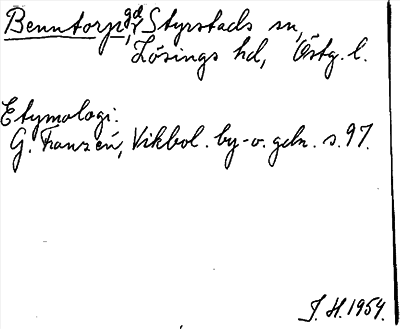 Benntorp, gd, Styrstads sn,
Lösings hd, Östg. l.
Etymologi:
G. Franzén, Vikbol. by- o. gdn. s. 97.
J. H. 1954.